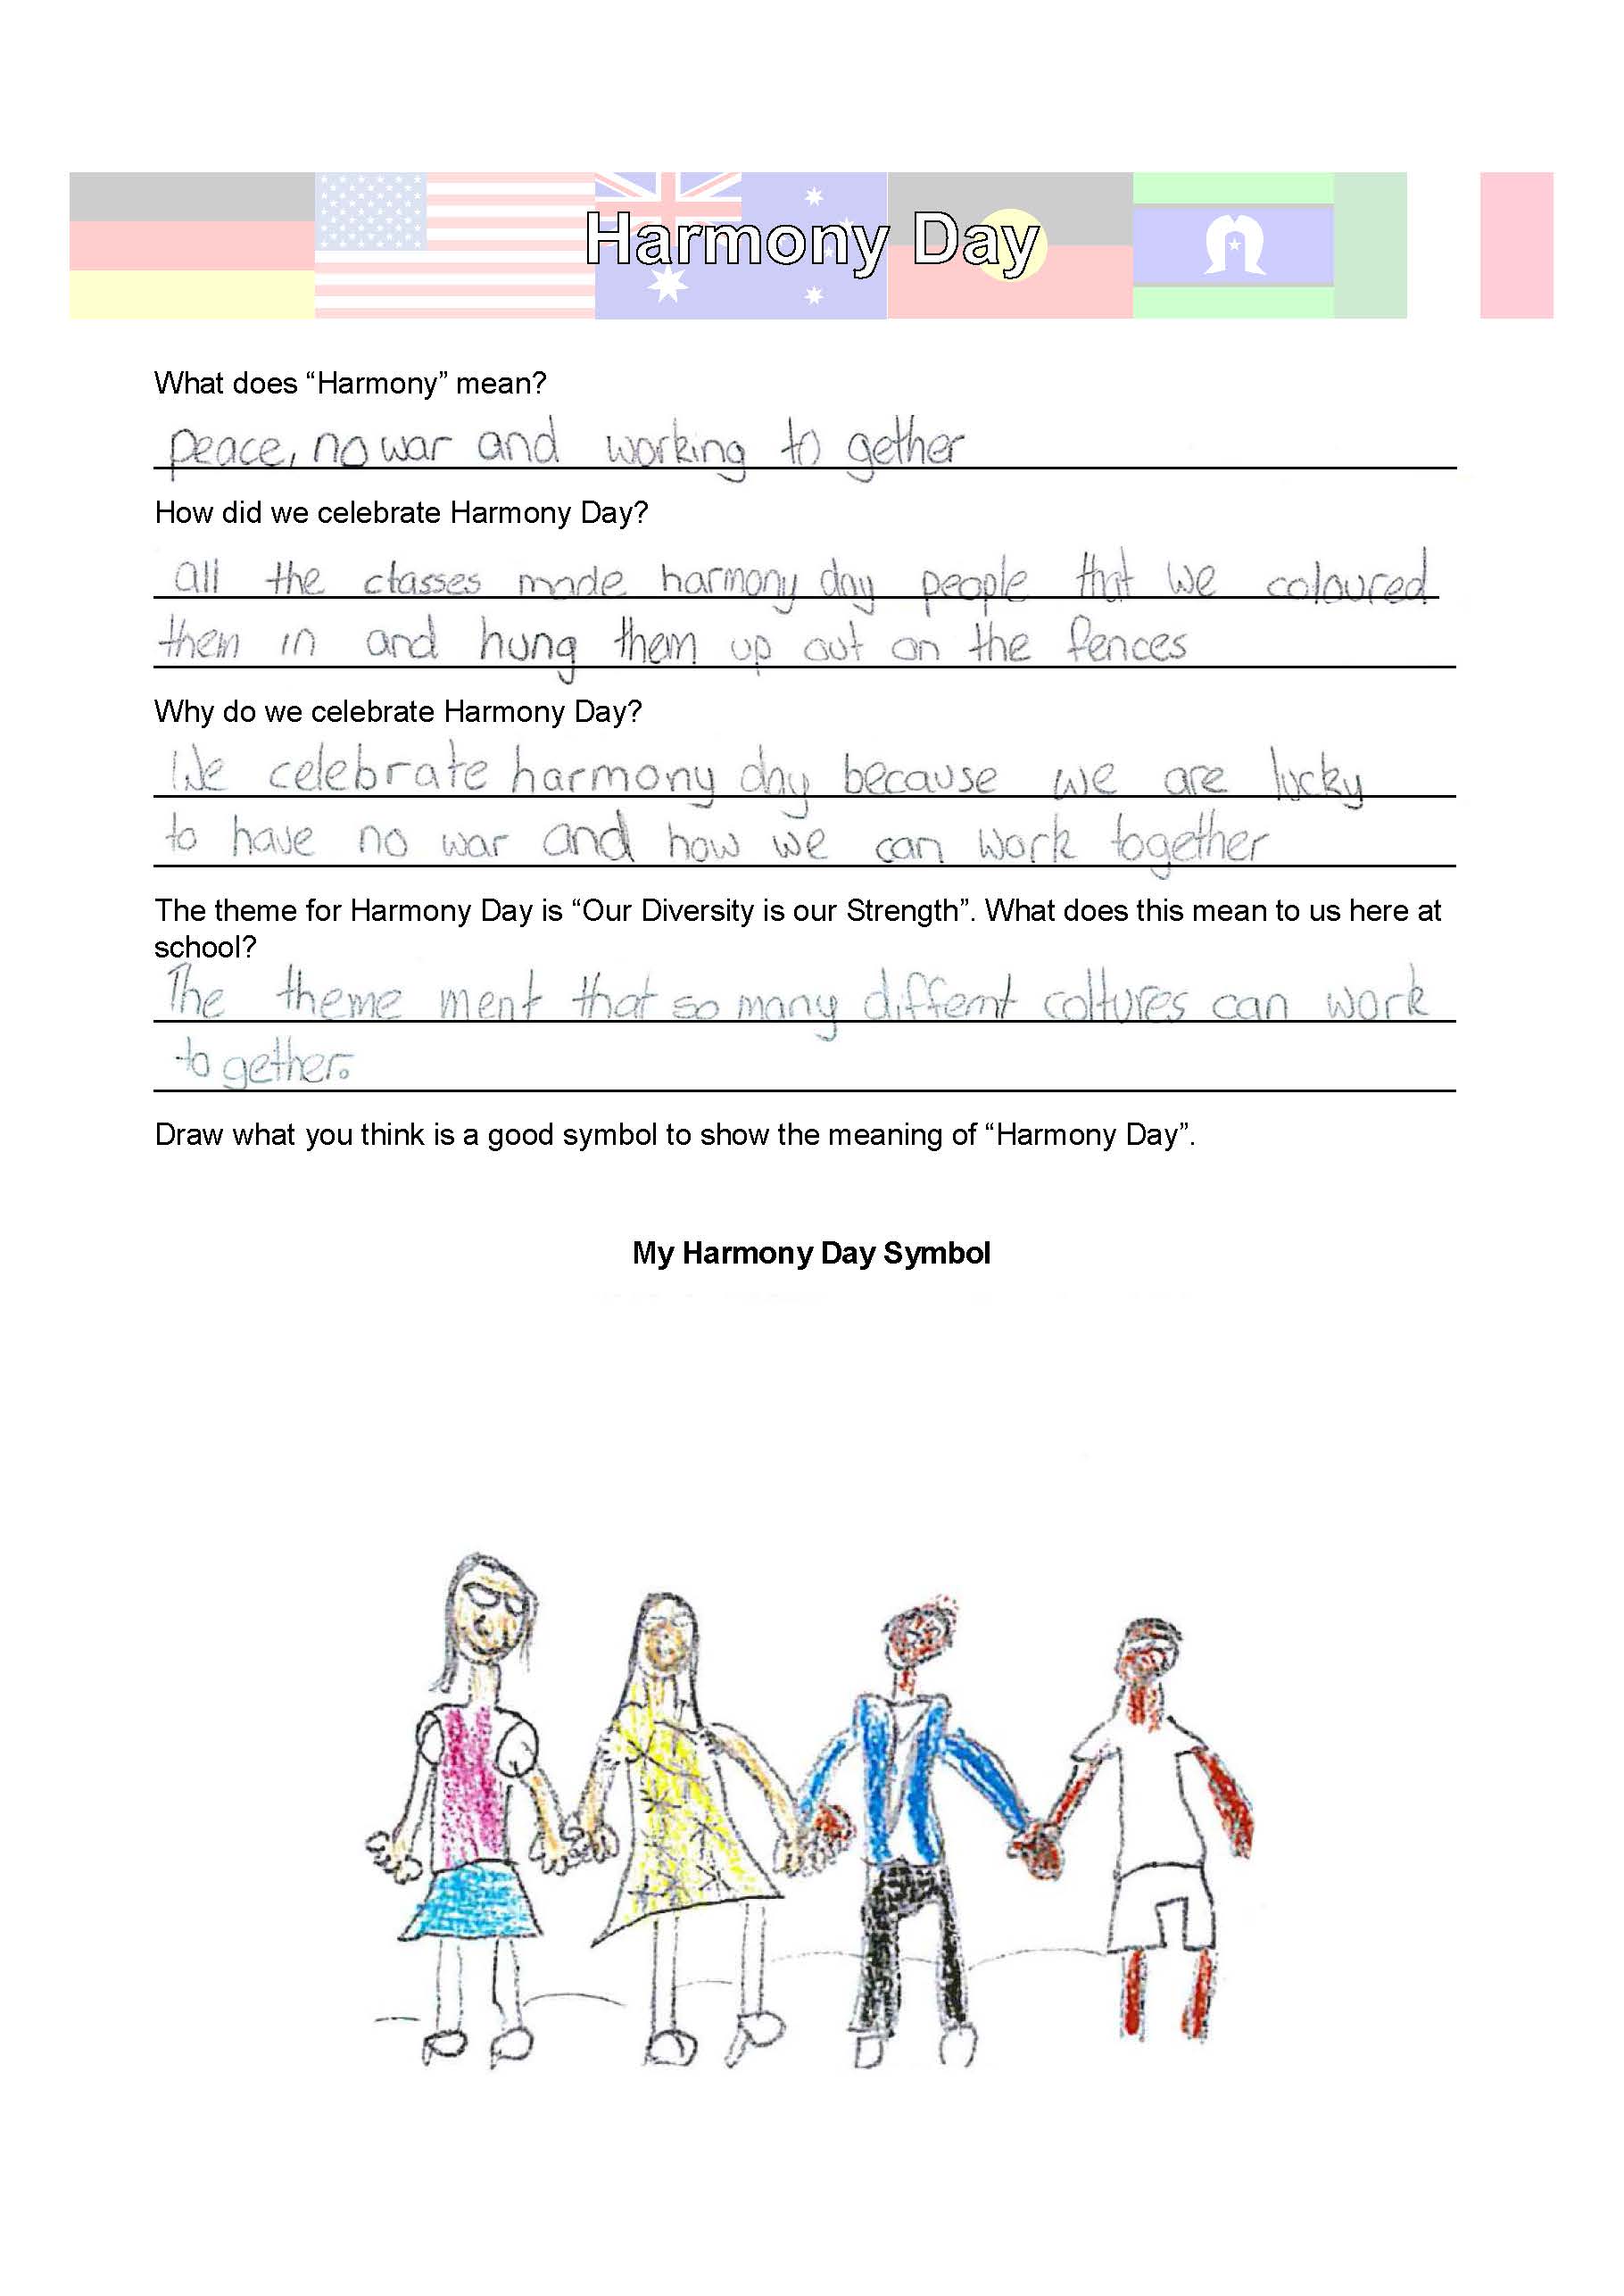 Harmony Day
What does “Harmony” mean?
peace, no war and working to gether
How did we celebrate Harmony Day?
all the classes made harmony day people that we coloured
them in and hung them up out on the fences
Why do we celebrate Harmony Day?
We celebrate harmony day because we are lucky
to have no war and how we can work together
The theme for Harmony Day is “Our Diversity is our Strength”. What does this mean to us here at
school?
The theme ment that so many differnt coltures can work
to gether.
Draw what you think is a good symbol to show the meaning of “Harmony Day”.
My Harmony Day Symbol